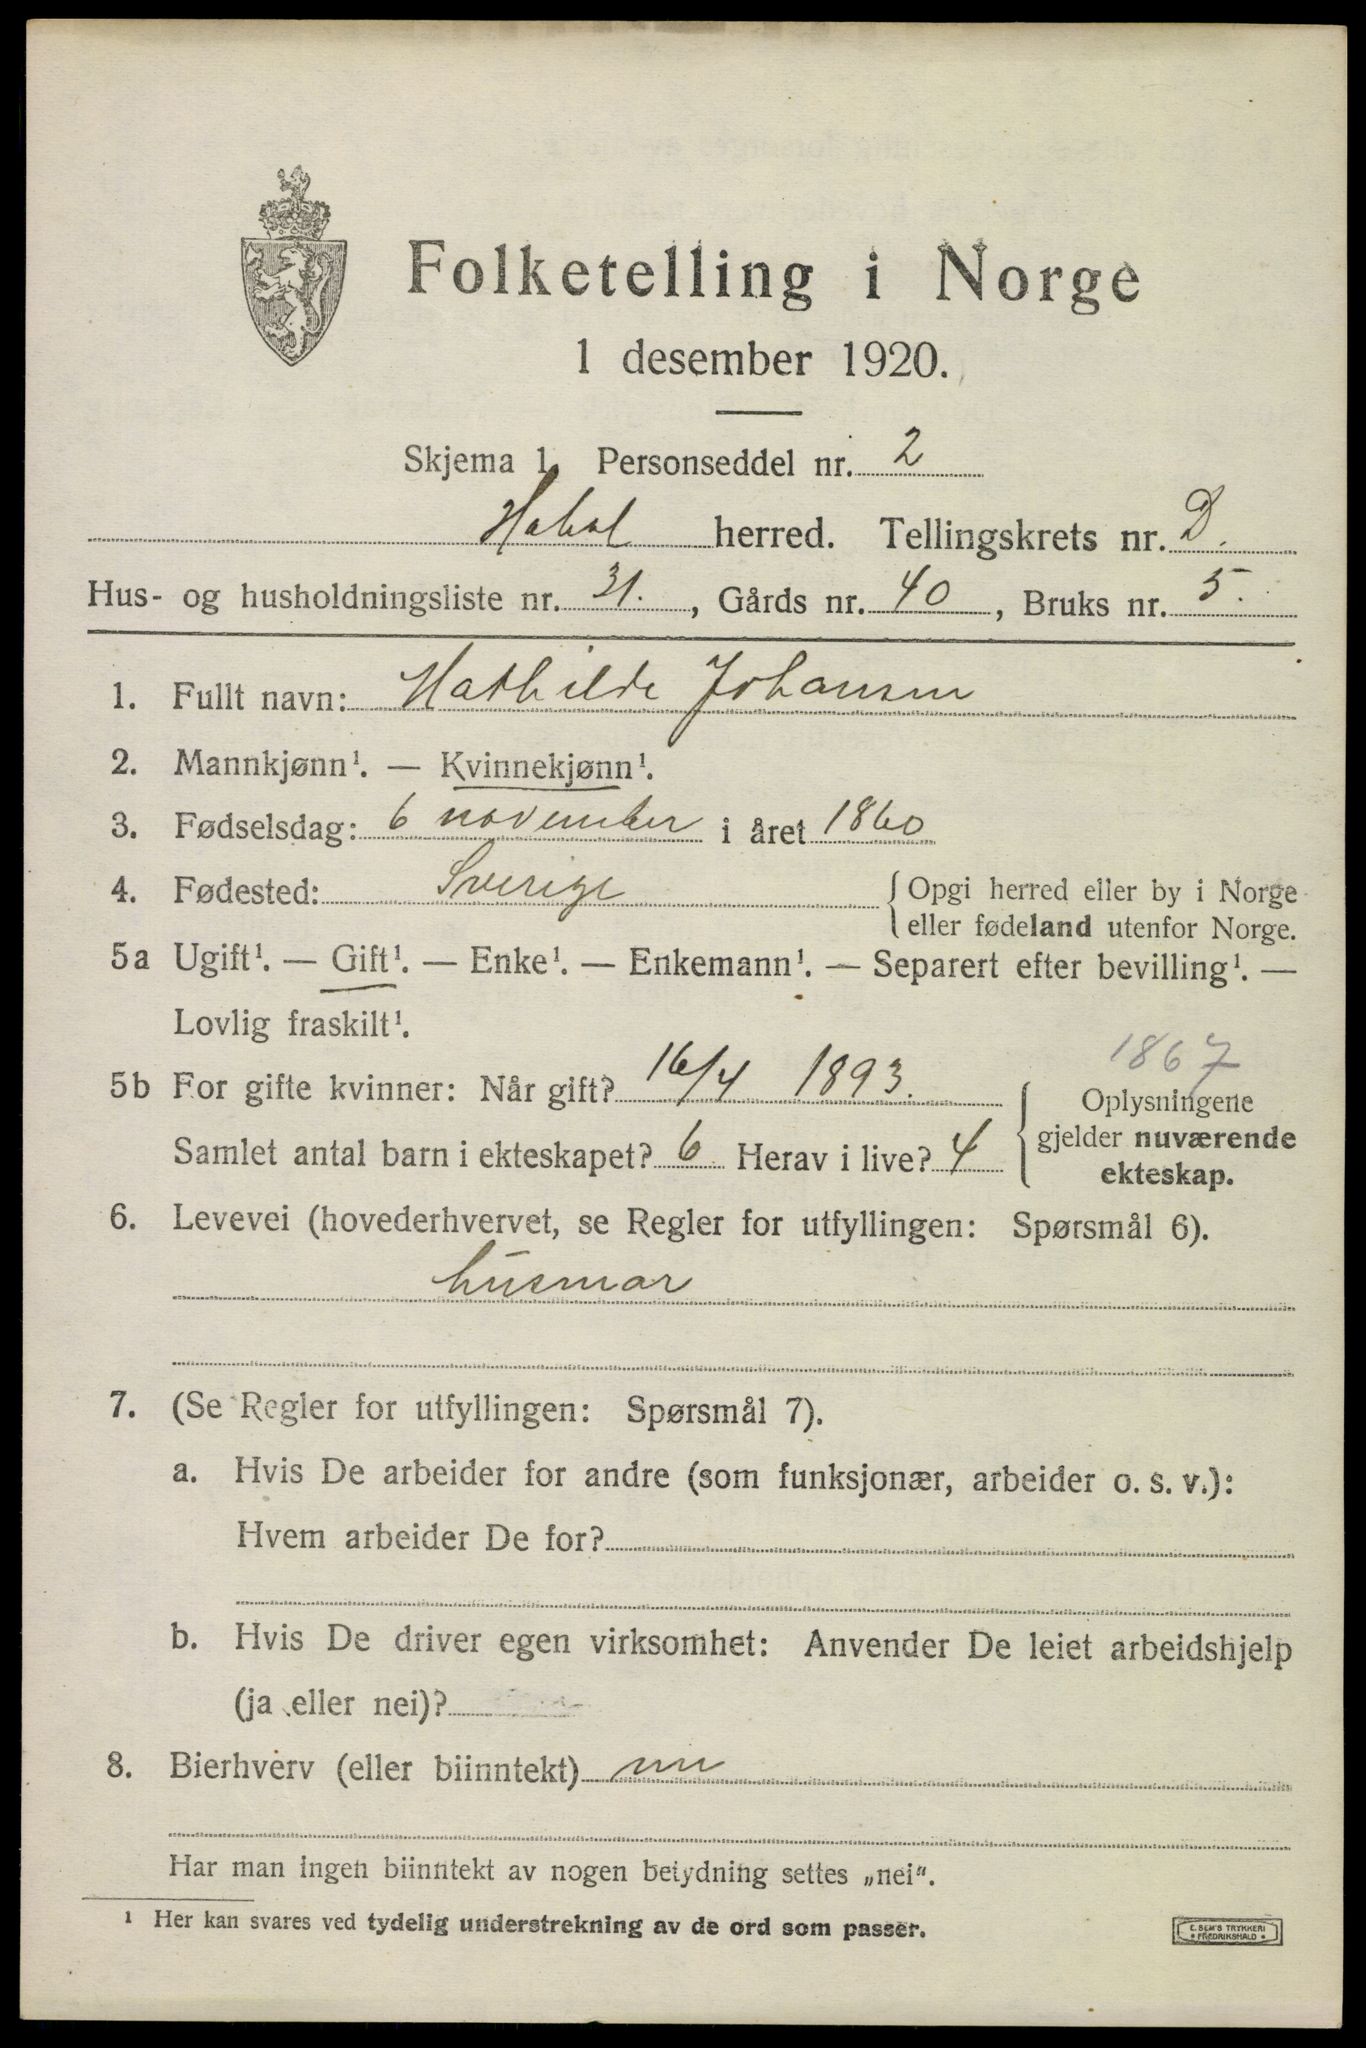 Folketelling i Norge
1 desember 1920.
Skjema 1. Personseddel nr. 2
Hobøl herred. Tellingskrets nr. D.
Hus- og husholdningsliste nr. 31., Gårds nr. 40, Bruks nr. 5.
1. Fullt navn: Mathilde Johansen
2. Mannkjønn¹. — Kvinnekjønn¹.
3. Fødselsdag: 6 november i året 1860
4. Fødested: Sverige
Opgi herred eller by i Norge
eller fødeland utenfor Norge.
5a Ugift¹. — Gift¹. — Enke¹. — Enkemann¹. — Separert efter bevilling¹. —
Lovlig fraskilt¹.
1867
5b For gifte kvinner: Når gift? 16/4 1893.
Samlet antal barn i ekteskapet? 6 Herav i live? 4
Oplysningene
gjelder nuværende
ekteskap.
6. Levevei (hovederhvervet, se Regler for utfyllingen: Spørsmål 6).
husmor
7. (Se Regler for utfyllingen: Spørsmål 7).
a. Hvis De arbeider for andre (som funksjonær, arbeider o. s. v.):
Hvem arbeider De for?
b. Hvis De driver egen virksomhet: Anvender De leiet arbeidshjelp
(ja eller nei)?
8. Bierhverv (eller biinntekt) nei
Har man ingen biinntekt av nogen betydning settes „nei“.
¹ Her kan svares ved tydelig understrekning av de ord som passer.
E. SEM'S TRYKKERI
• FREDRIKSHALD •